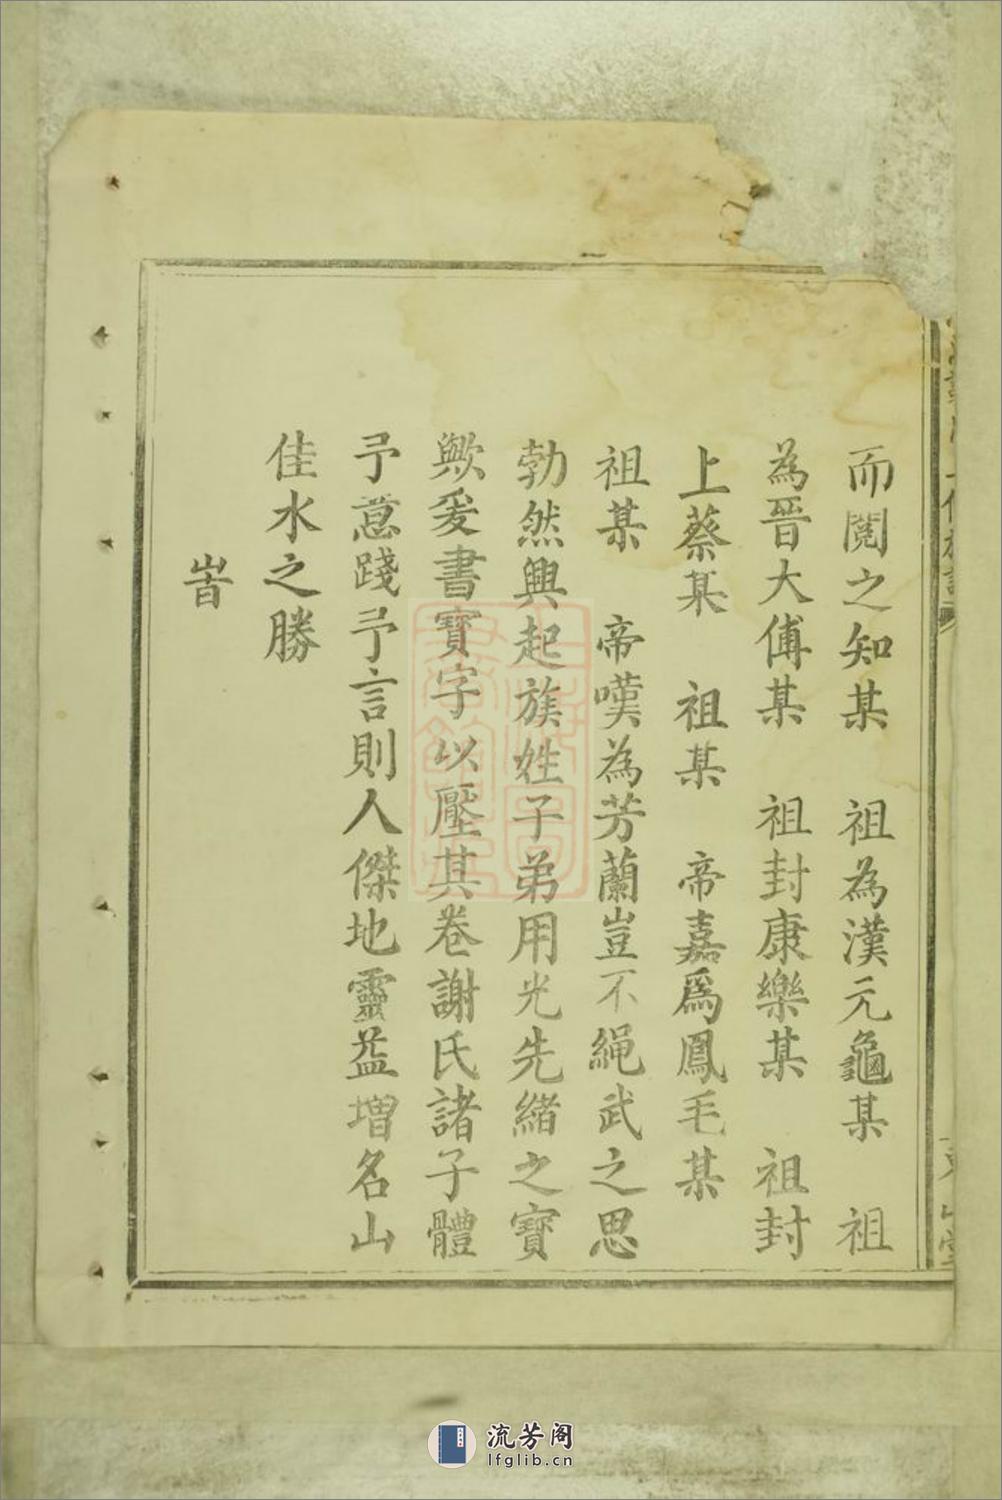 而閱之知某　祖為漢元龜某　祖
為晉大傅某　祖封康樂某　祖封
上蔡某　祖某　帝嘉爲鳳毛某
祖某　帝嘆為芳蘭豈不繩武之思
勃然興起族姓子弟用光先緒之寶
歟爰書寶字以壓其卷謝氏諸子體
予意踐予言則人傑地靈益增名山
佳水之勝
旹
流芳阁
lfglib.cn